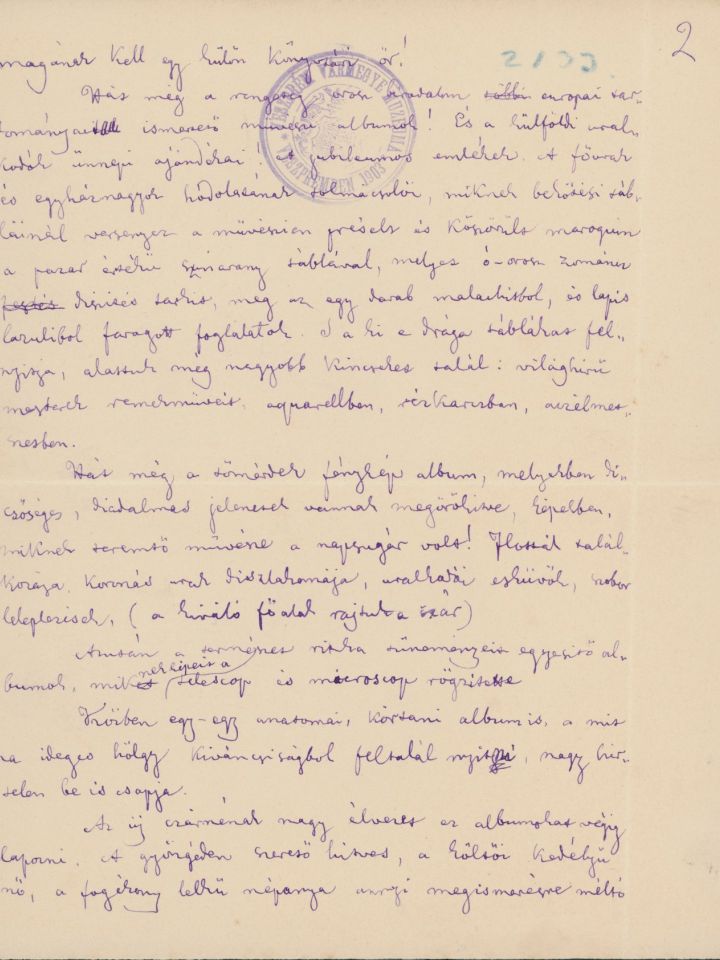 2
2133
magának kell egy külön könyvtári őr!
Hát még a rengeteg orosz birodalom európai tar-
tományait ismertető művészi albumok! És a külföldi ural-
kodók ünnepi ajándékai! A jubileumos emlékek. A főurak
és egyháznagyok hódolatának tolmácsolói, miknek bekötési táb-
láinál versenyez a művésziesen préselt és köszörült maroquin
a pazar értékű színarany táblával, melyet ó-orosz zománcz
díszítés tarkít, meg az egy darab malachitból, és lapis
lazuliból faragott foglalatok. S a ki e drága táblákat fel-
nyitja, alattuk még nagyobb kincseket talál: világhírű
mesterek remekműveit, aquarellben, rézkarczban, aczélmet-
szetben.
Hát még a tömérdek fénykép album, melyekben di-
csőséges, diadalmas jelenetek vannak megörökítve, képekben,
miknek teremtő művésze a napsugár volt! Flották talál-
kozása. Koronás urak díszlakomája, uralkodói esküvők, szobor
leleplezések, (a kiváló főalak rajtuk a czár)
Azután a természet ritka tüneményeit egyesítő al-
bumok, miknek képeit a telescop és microscop rögzítette
Közben egy-egy anatomai, kórtani album is, a mit
ha ideges hölgy kíváncsiságból feltalál nyitni, nagy hir-
telen be is csapja.
Az új czárnénak nagy élvezet ez albumokat végig
lapozni. A gyöngéden szerető hitves, a költői kedélyű
nő, a fogékony lelkű népanya annyi megismerésre méltó
VÁRMEGYEI MÚZEUM
VESZPRÉMBEN 1903